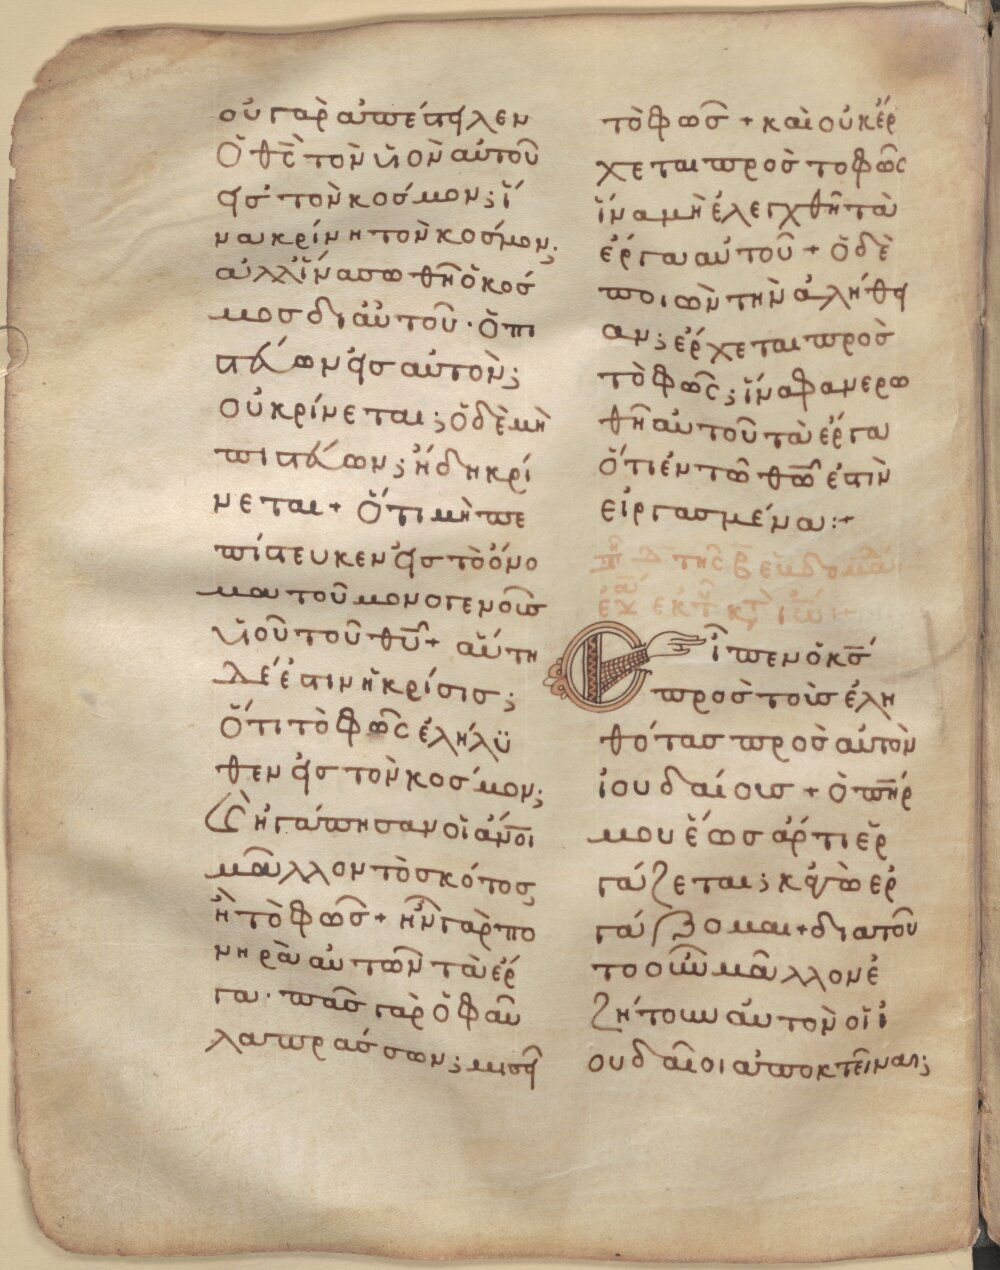 οὐ γὰρ ἀπέστειλεν
ὁ θς̅ τὸν υἱὸν αὐτοῦ
εἰς τὸν κόσμον; ἵ
να κρίνη τὸν κόσμον;
ἀλλ' ἵνα σωθῆ ὁ κόσ
μος δι' αὐτοῦ· ὁ πι
στεύων εἰς αὐτὸν;
οὐ κρίνεται; ὁ δὲ μὴ
πιστεύων; ἤδη κρί
νεται + ὅτι μὴ πε
πίστευκεν εἰς τὸ ὄνο
μα τοῦ μονογενοῦσ
υἱοῦ τοῦ θυ̅ + αὕτη
δέ ἐστιν ἡ κρίσις;
ὅτι τὸ φῶς ἐλήλϋ
θεν εἰς τὸν κόσμον;
καὶ ἠγάπησαν οἱ ἀν̅οι
μᾶλλον τὸ σκότος
ἢ τὸ φῶσ + ἦν γὰρ πο
νηρὰ αὐτῶν τὰ ἔρ
γα· πᾶσ γὰρ ὁ φαῦ
λα πράσσων; μισεῖ
τὸ φῶσ + καὶ οὐκ ἔρ
χεται πρὸσ τὸ φῶς
ἵνα μὴ ἐλεγχθῆ τὰ
ἔργα αὐτοῦ + ὁ δὲ
ποιῶν τὴν ἀλήθει
αν; ἔρχεται πρὸσ
τὸ φῶς; ἵνα φανερω
θῆ αὐτοῦ τὰ ἔργα
ὅτι ἐν τῶ θω̅ ἐστὶν
εἰργασμένα:+
τῆς β̅ ἑβδομάδ
ἐκ τ κτ ιω:+
Εἶπεν ὁ κσ̅
πρὸσ τοὺσ ἐλη
θότασ πρὸσ αὐτὸν
ἰουδαίουσ + ὁ πη̅ρ
μου ἕωσ ἄρτι ἐρ
γάζεται; κἀγὼ ἐρ
γάζομαι + διὰ τοῦ
το οὖν μᾶλλον ἐ
ζήτουν αὐτὸν οἱ ἰ
ουδαῖοι ἀποκτεῖναι;